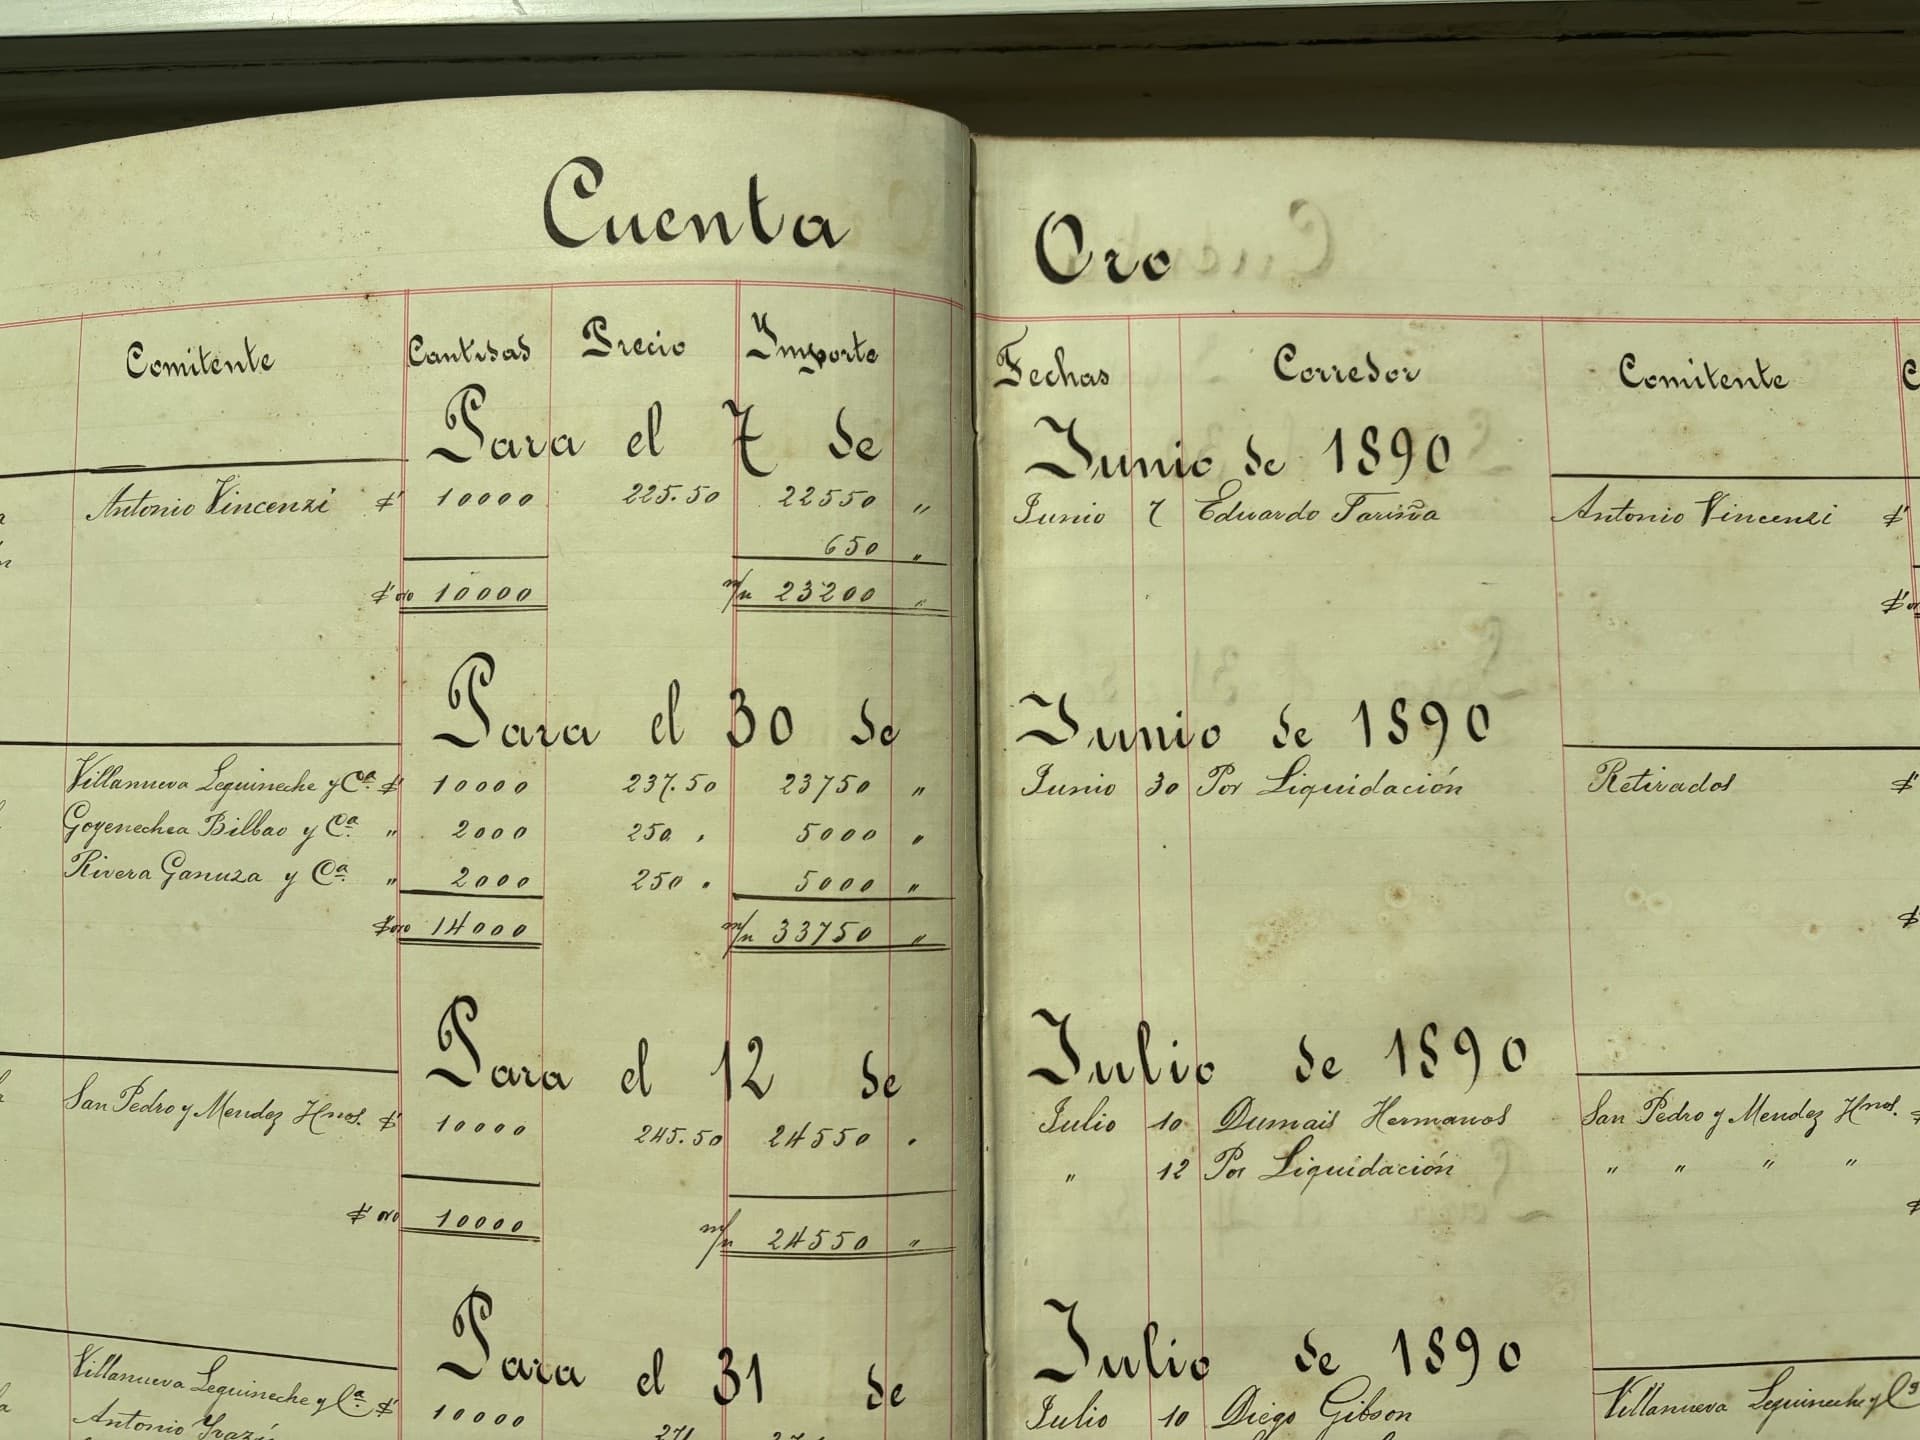 Cuenta Oro
Comitente Cantidad Precio Importe
Para el 7 de
Antonio Vincenzi $ 10000 225.50 22550 "
650 "
$ oro 10000 m/n 23200 "
Para el 30 de
Villanueva Leguineche y Cª $ 10000 237.50 23750 "
Goyenechea Bilbao y Cª " 2000 250 " 5000 "
Rivera Ganuza y Cª " 2000 250 " 5000 "
$ oro 14000 m/n 33750 "
Para el 12 de
San Pedro y Mendez Hnos. $ 10000 245.50 24550 "
$ oro 10000 m/n 24550 "
Para el 31 de
Villanueva Leguineche y Cª $ 10000
Antonio
Fechas Corredor Comitente
Junio de 1890
Junio 7 Eduardo Fariña Antonio Vincenzi $
Junio de 1890
Junio 30 Por Liquidación Retirados $
$
Julio de 1890
Julio 10 Dumais Hermanos San Pedro y Mendez Hnos.
" 12 Por Liquidación " " " "
Julio de 1890
Julio 10 Diego Gibson Villanueva Leguineche y Cª